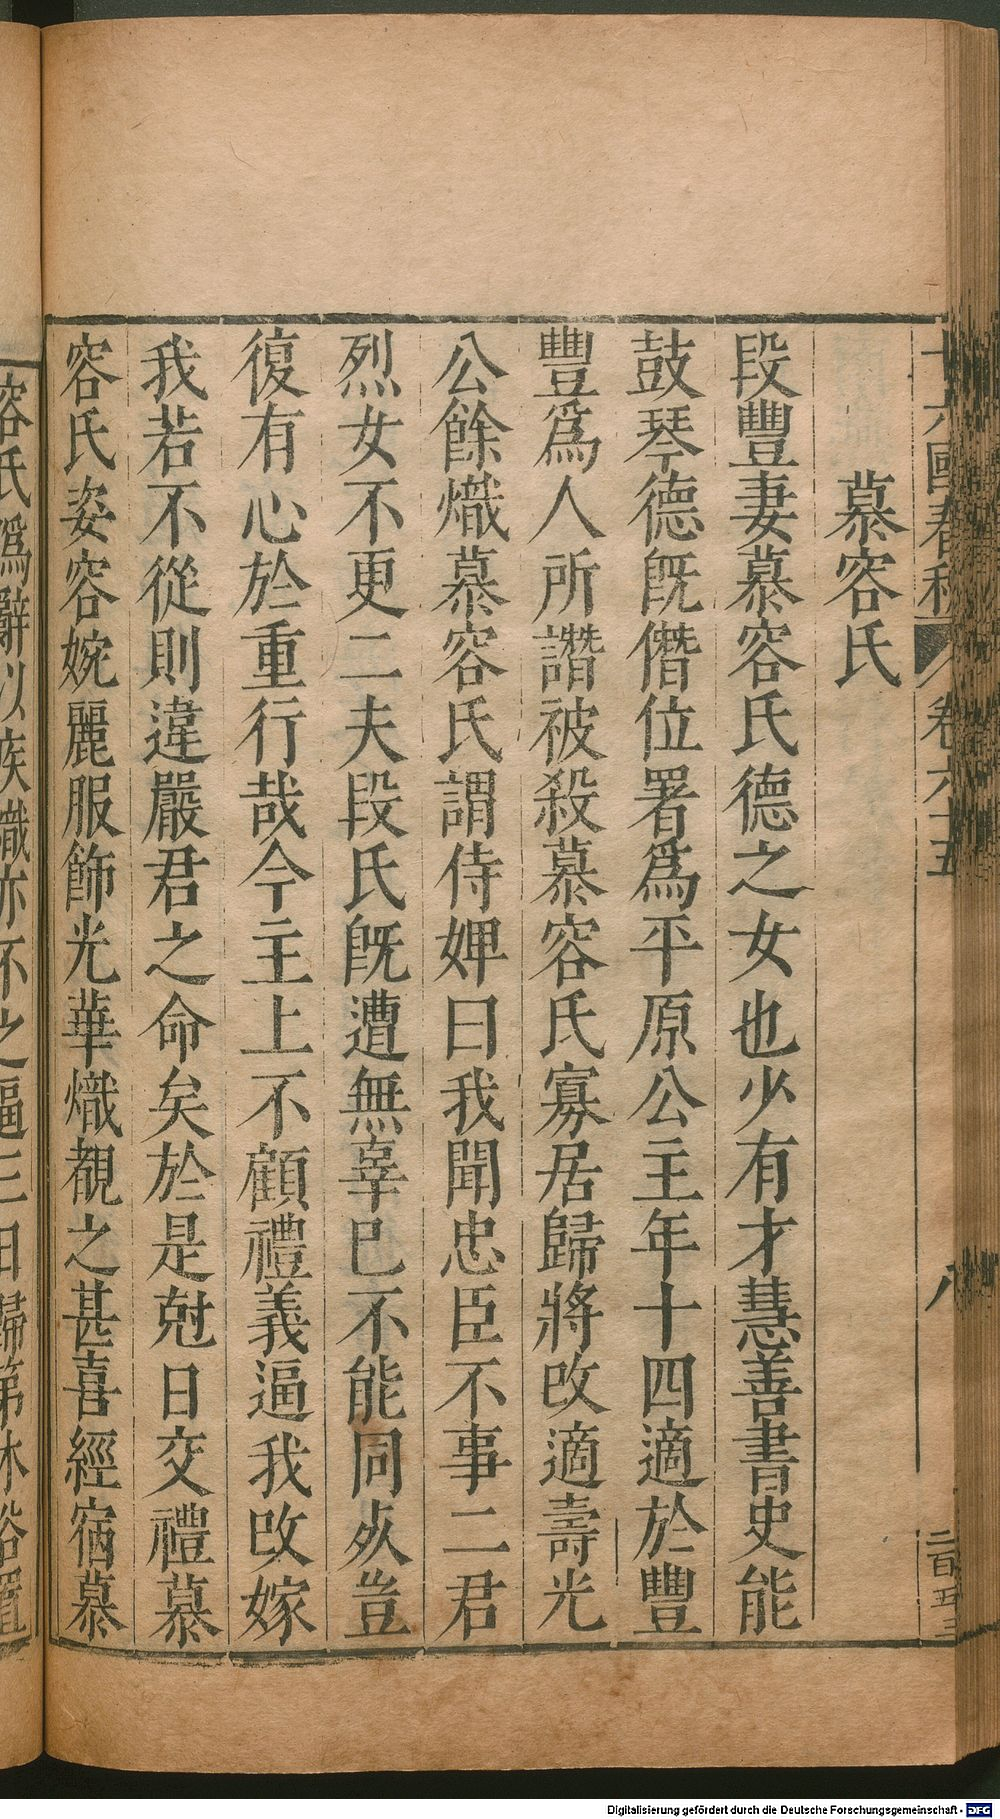 十六國春秋 卷六十五 八
慕容氏
段豐妻慕容氏德之女也少有才慧善書史能
鼓琴德旣僭位署爲平原公主年十四適於豐
豐爲人所譖被殺慕容氏寡居歸將改適壽光
公餘熾慕容氏謂侍婢曰我聞忠臣不事二君
烈女不更二夫段氏旣遭無辜已不能同死豈
復有心於重行哉今主上不顧禮義逼我改嫁
我若不從則違嚴君之命矣於是尅日交禮慕
容氏姿容婉麗服飾光華熾覩之甚喜經宿慕
容氏僞辭以疾熾亦不之逼三日歸第沐浴置
Digitalisierung gefördert durch die Deutsche Forschungsgemeinschaft - DFG